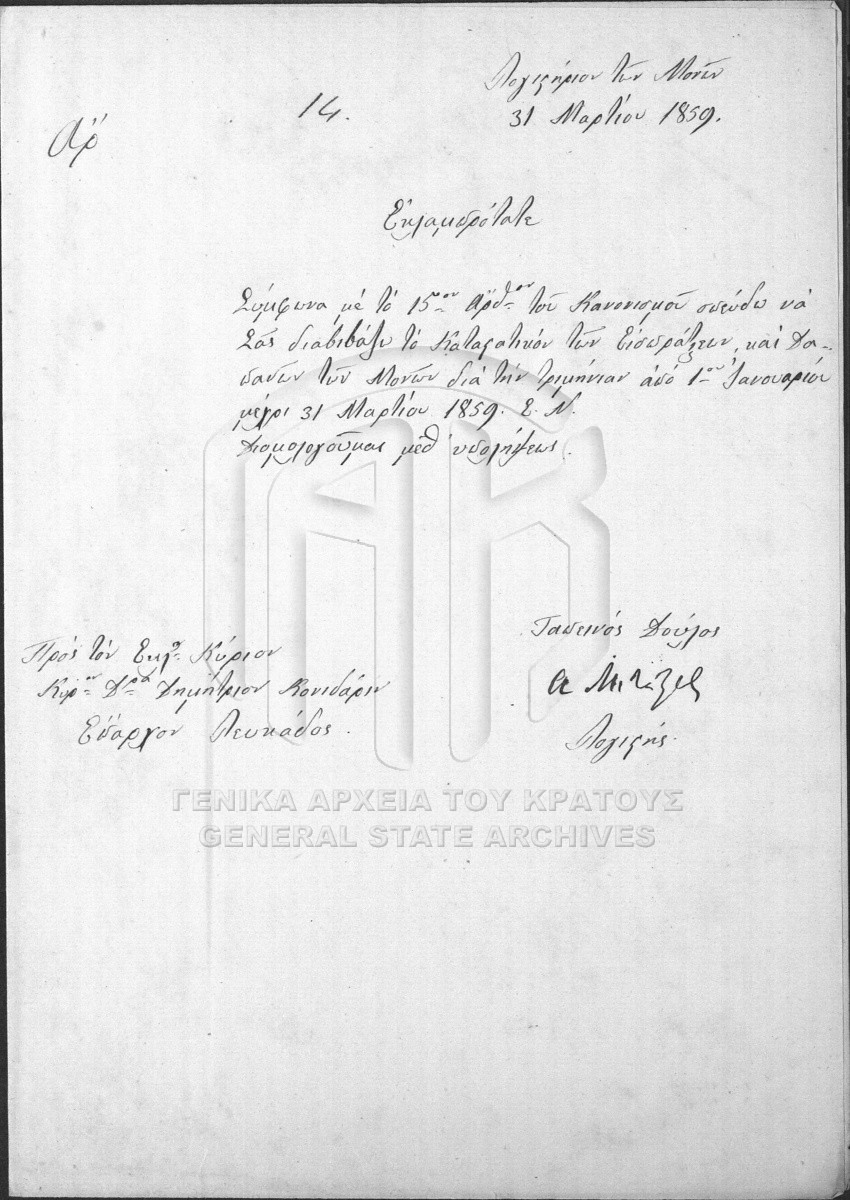 Λογιστήριον τῶν Μονῶν
31 Μαρτίου 1859.
14.
Ἀρ
Ἐκλαμπρότατε
Σύμφωνα μὲ τὸ 15ον Ἄρθρον τοῦ Κανονισμοῦ σπεύδω νὰ
Σᾶς διαβιβάσω τὸ Καταστατικὸν τῶν Εἰσπράξεων, καὶ Δα-
πανῶν τῶν Μονῶν διὰ τὴν τριμηνίαν ἀπὸ 1ου Ἰανουαρίου
μέχρι 31 Μαρτίου 1859. Ε. Ν.
Διομολογοῦμαι μεθ᾽ ὑπολήψεως.
Ταπεινὸς Δοῦλος
Λογιστής.
Πρὸς τὸν Εκλον Κύριον
Κύρον Δρα Δημήτριον Κονιδάριν
Ἔπαρχον Λευκάδος.
ΓΕΝΙΚΑ ΑΡΧΕΙΑ ΤΟΥ ΚΡΑΤΟΥΣ
GENERAL STATE ARCHIVES